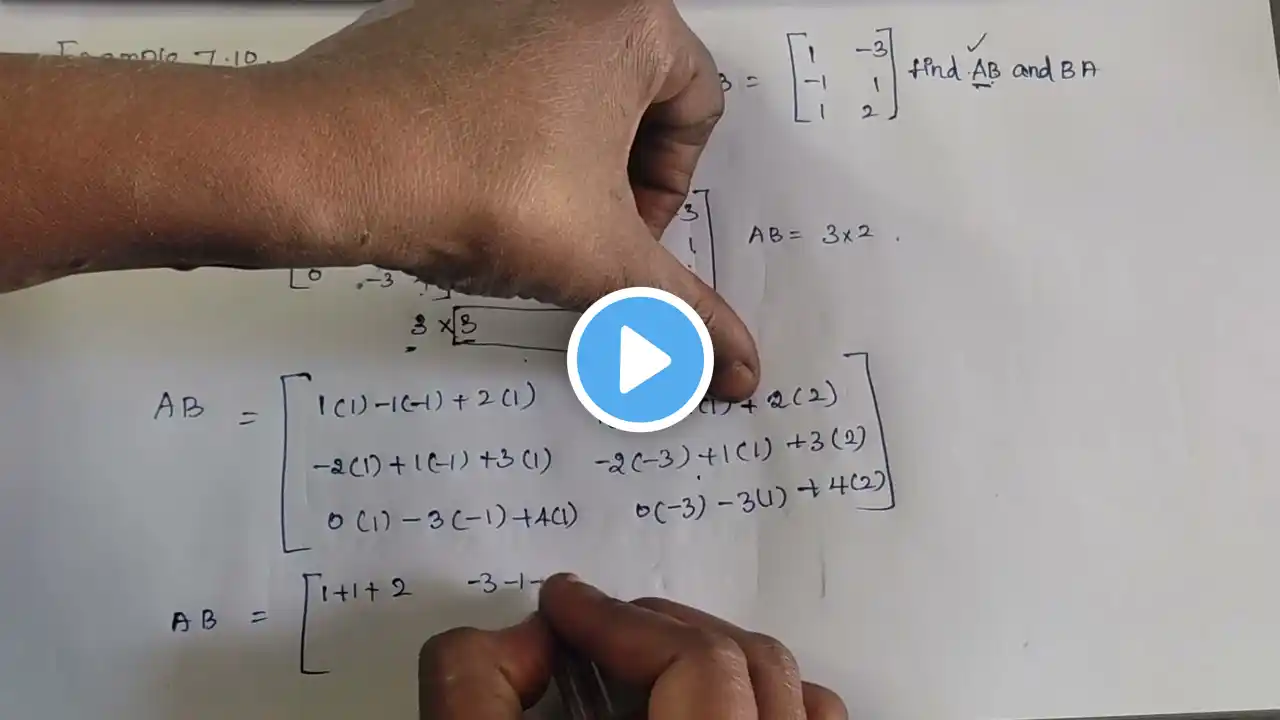 Example 7.10.
B = [ 1 -3
-1 1 find AB and BA
1 2 ]
3
1 AB = 3×2 .
0 -3
3 × 3
AB = [ 1(1)-1(-1)+2(1) (1)+2(2)
-2(1)+1(-1)+3(1) -2(-3)+1(1)+3(2)
0(1)-3(-1)+4(1) 0(-3)-3(1)+4(2) ]
AB = [ 1+1+2 -3-1